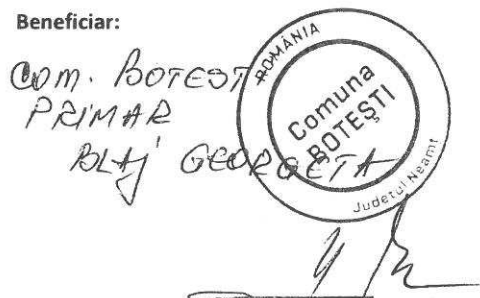 Beneficiar:
COM. BOTEST
PRIMAR
BLAJ GEORGETA
ROMÂNIA
Comuna
BOTEȘTI
Judeţul Neamţ